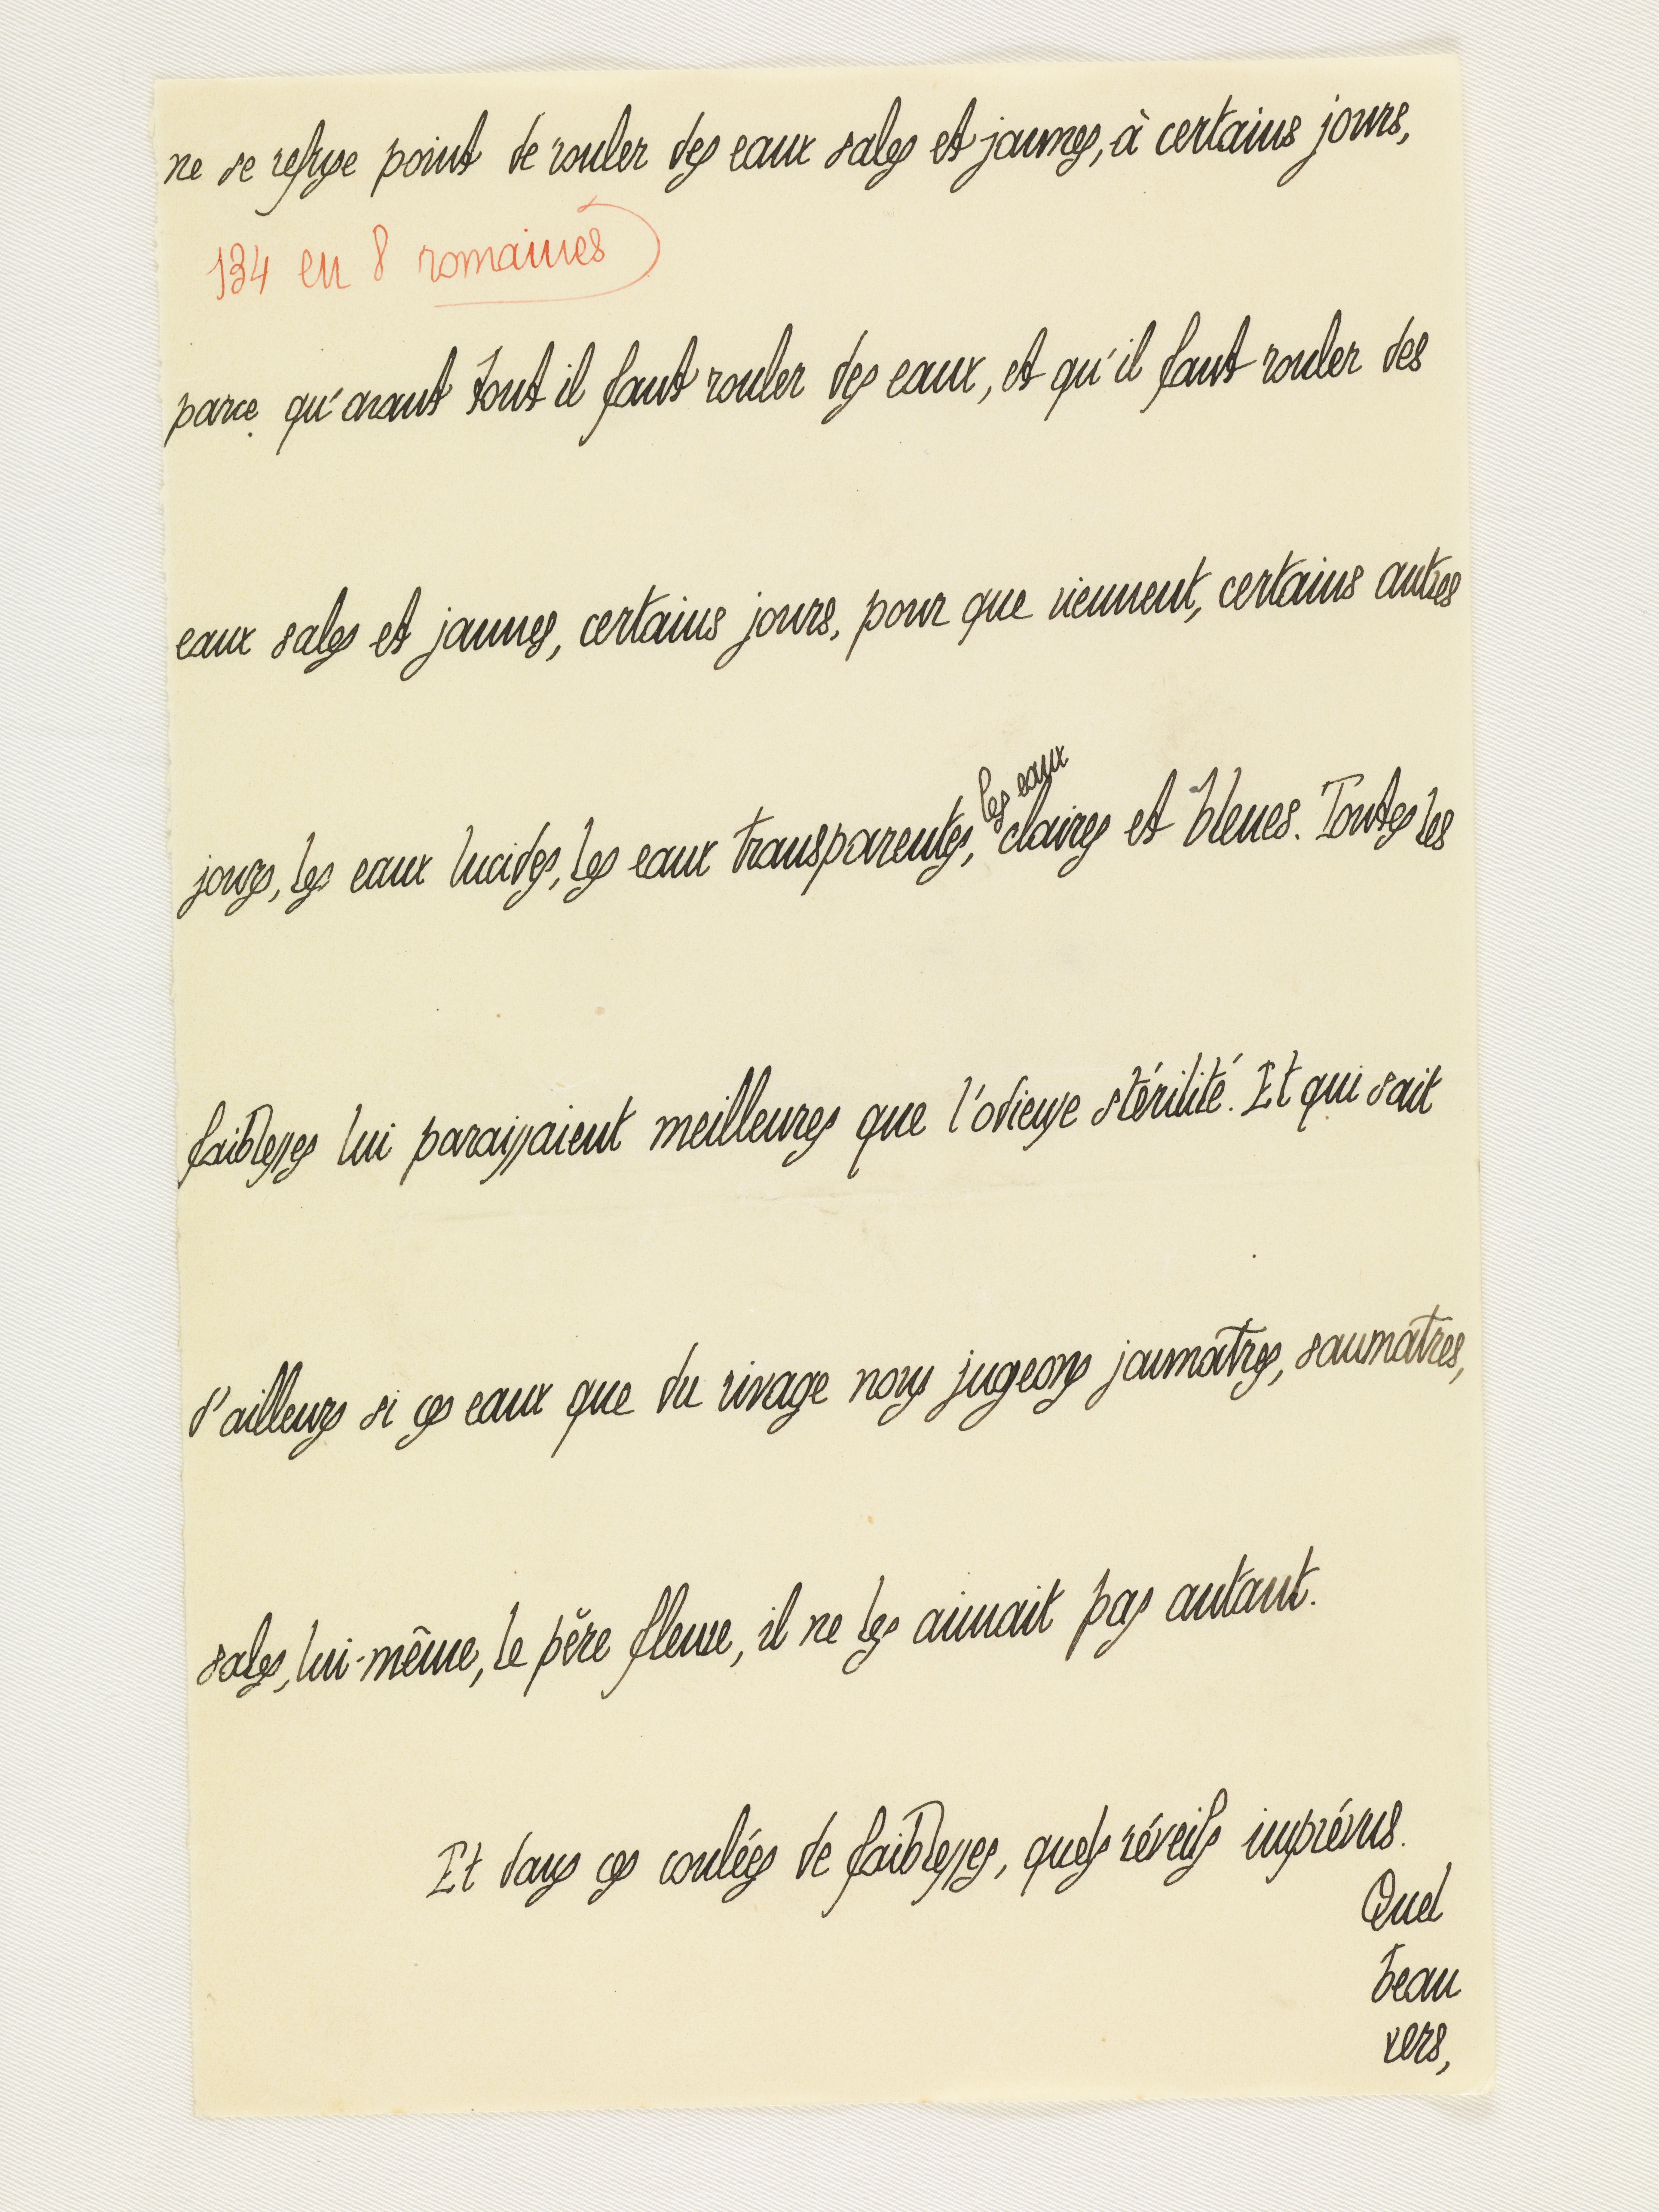 ne se refuse point de rouler des eaux sales et jaunes, à certains jours,
134 en 8 romaines
parce qu'avant tout il faut rouler des eaux, et qu'il faut rouler des
eaux sales et jaunes, certains jours, pour que viennent, certains autres
jours, les eaux lucides, les eaux transparentes, les eaux claires et bleues. Toutes les
faiblesses lui paraissaient meilleures que l'odieuse stérilité. Et qui sait
d'ailleurs si ces eaux que du rivage nous jugeons jaumâtres, saumâtres,
sales, lui-même, le père fleuve, il ne les aimait pas autant.
Et dans ces coulées de faiblesses, quels réveils imprévus.
Quel
beau
vers,